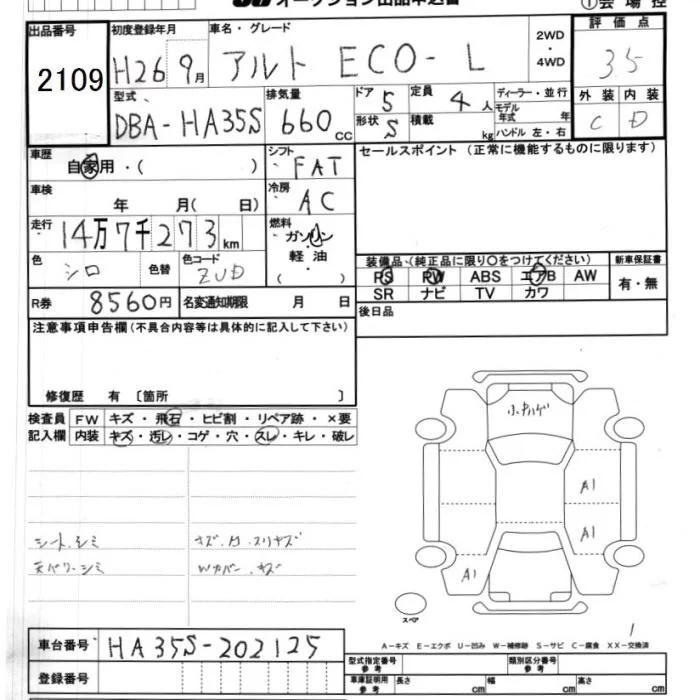 オークション出品申込書
①会場控
出品番号 初度登録年月 車名・グレード 2WD・4WD 評価点
2109 H26 9月 アルト ECO-L 3.5
型式 排気量 ドア 定員 ディーラー・並行 外装 内装
DBA-HA35S 660cc 5 4人 モデル年式 年 C D
形状 S 積載 kg ハンドル 左・右
車歴 シフト セールスポイント (正常に機能するものに限ります)
自家用・( ) FAT
車検 冷房
年 月( 日) AC
走行 燃料
14万7千273km ガソリン
軽油
( )
色 色替 色コード
シロ ZUD
装備品・(純正品に限り○をつけてください) 新車保証書
PS PW ABS エアB AW 有・無
SR ナビ TV カワ
R券 8560円 名変通知期限 月 日
後日品
注意事項申告欄(不具合内容等は具体的に記入して下さい)
修復歴 有 〔箇所 〕
検査員 FW キズ・飛石・ヒビ割・リペア跡・×要
記入欄 内装 キズ・汚レ・コゲ・穴・スレ・キレ・破レ
小キハゲ
A1
A1
A1
シート、シミ
天バリ、シミ
Wカバー、キズ
スペア
1
A-キズ E-エクボ U-凹み W-補修跡 S-サビ C-腐食 XX-交換済
車台番号 HA35S-202125
登録番号
型式指定番号 参考 類別区分番号 参考
車庫証明用 参考 長さ cm 幅 cm 高さ cm